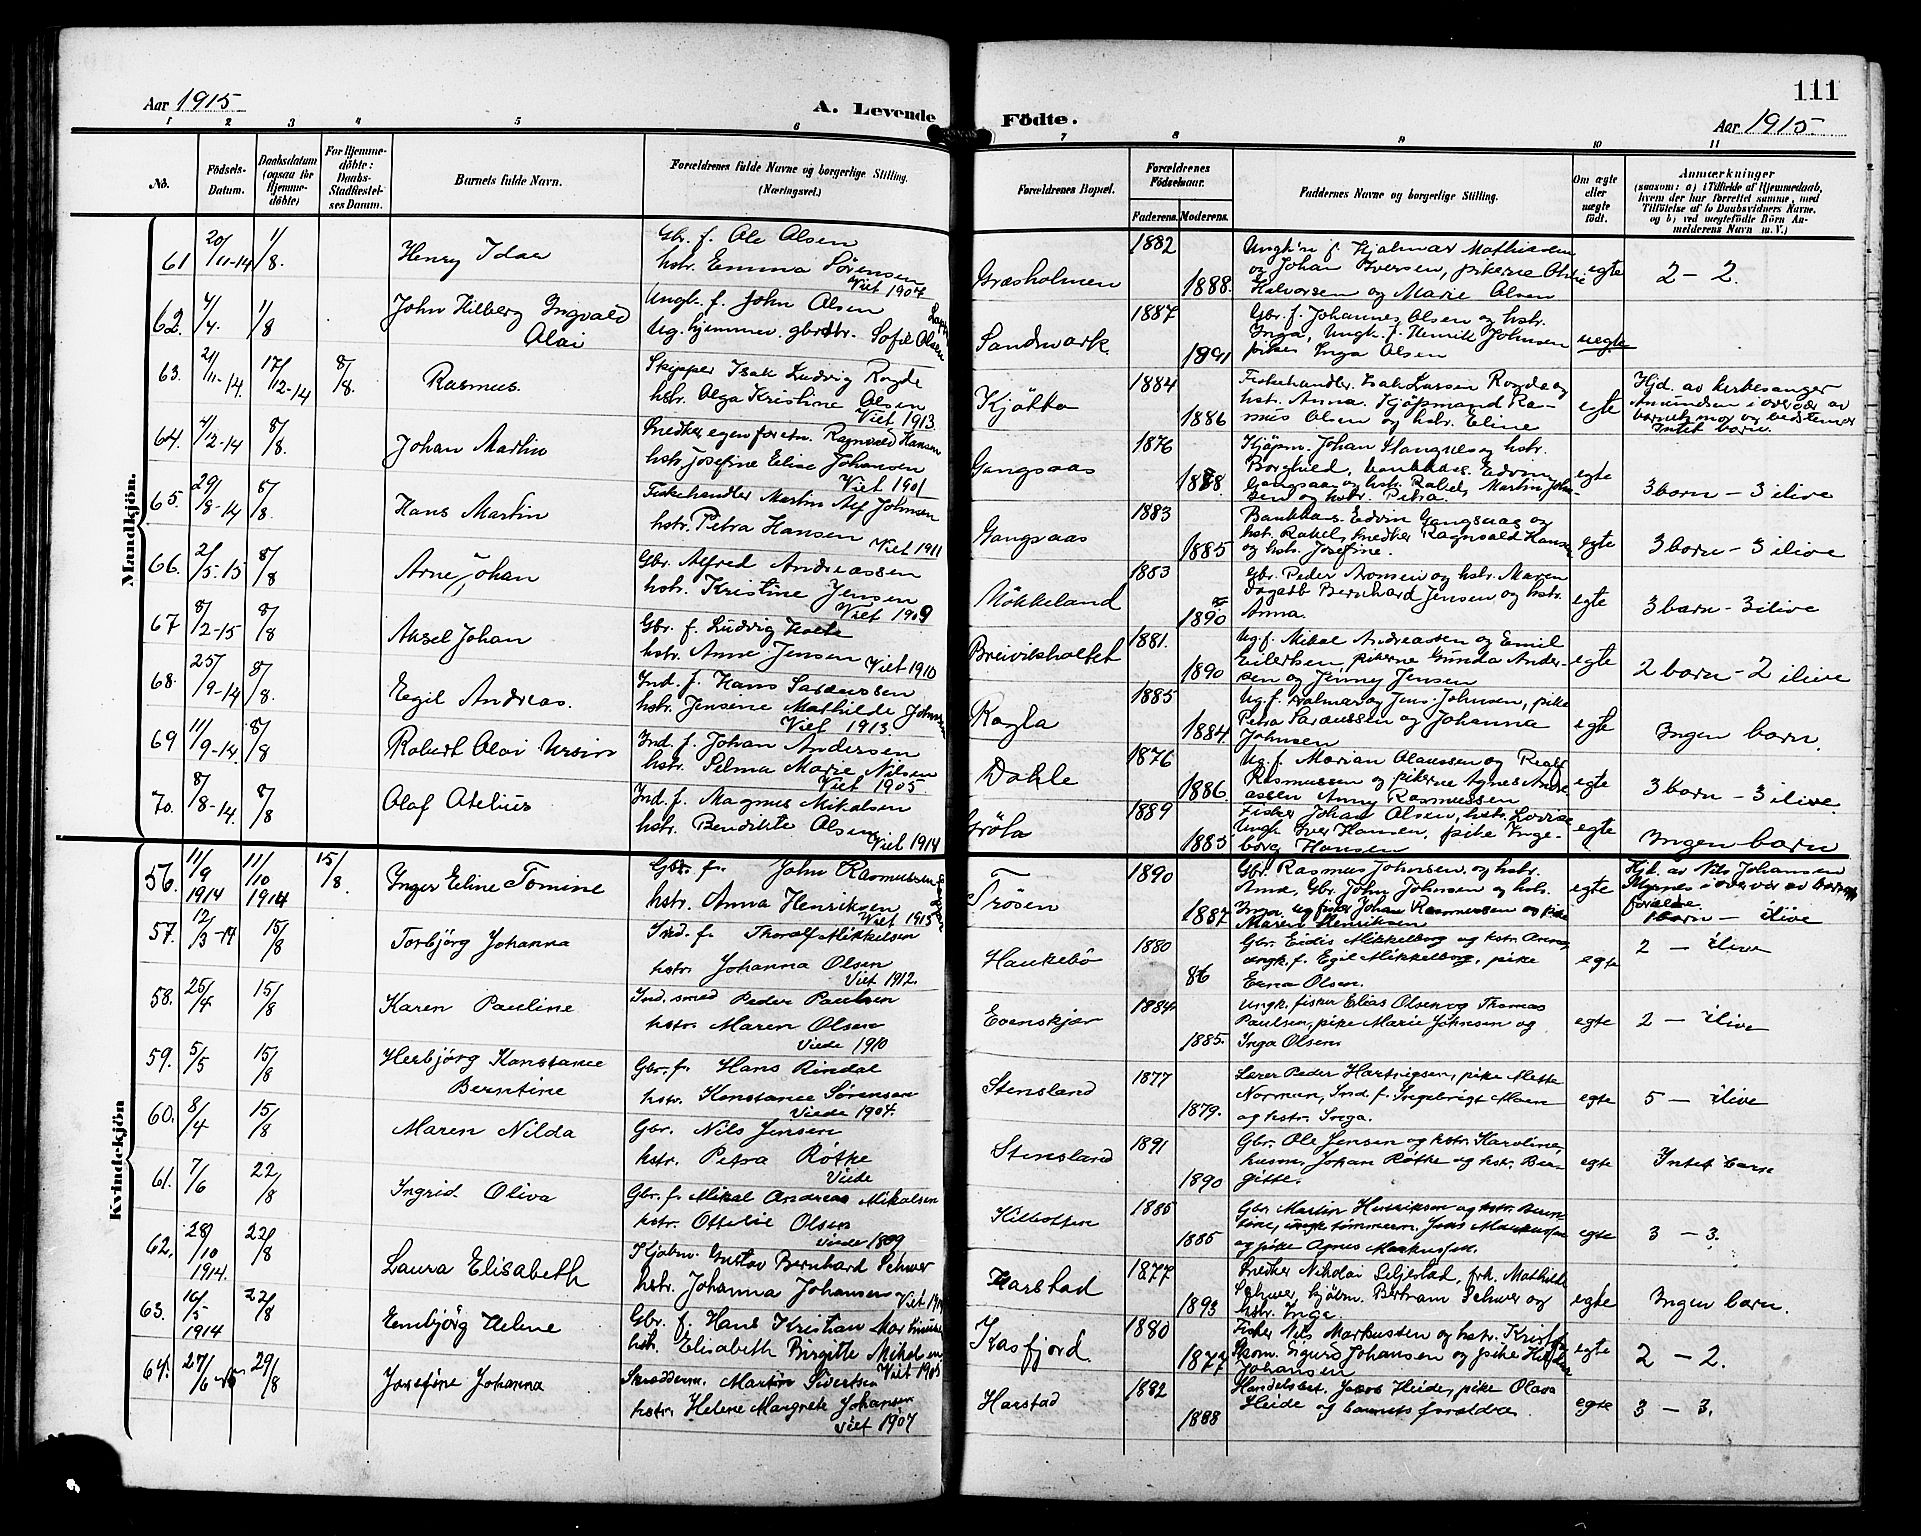 111
Aar 1915
A. Levende
Födte.
Aar 1915
1 2 3 4 5 6 7 8 9 10 11
No.
Födsels-
Datum.
Daabsdatum
(ogsaa for
Hjemme-
döbte)
For Hjemme-
döbte:
Daabs-
Stadfæstel-
ses Datum.
Barnets fulde Navn.
Forældrenes fulde Navne og borgerlige Stilling.
(Næringsvei.)
Forældrenes Bopæl.
Forældrenes
Födselsaar.
Faderens. Moderens.
Faddernes Navne og borgerlige Stilling.
Om ægte
eller
uægte
födt.
Anmærkninger
(saasom: a) i Tilfælde af Hjemmedaab,
hvem der har forrettet samme, med
Tilföielse af to Daabsvidners Navne,
og b) ved uægtefödte Börn An-
melderens Navn m. V.)
Mandkjön.
61 20/11-14 1/8. Henry Idar
Gbr. f. Ole Olsen
hstr. Emma Sørensen
Viet 1904
Græsholmen 1882 1888.
Ungk. f. Hjalmar Mathisen
og Johan Iversen, pikerne
Halvorsen og Marie Olsen
egte 2 - 2.
62. 4/4. 1/8 John Hilberg Ingvald
Olai
Ungk. f. John Olsen
Ug. hjemmev. gbrdtr. Sofie Olsen
Sandmark. 1887 1891
Gbr. f. Johannes Olsen og hstr.
Inga, Ungk. f. Henrik Johnsen
pike Inga Olsen
uegte
63. 2/11-14. 17/12-14 8/8. Rasmus.
Skipper Isak Ludvig Rogde
hstr. Olga Kristine Olsen
Viet 1913.
Kjøtta 1884 1886
Fiskehandler Isak Larsen Rogde og
hstr. Anna. Kjøpmand Ra-
mus Olsen og hstr. Eline
egte
Hjd. av kirkesanger
Amundsen i overvær av
barnets mor og bedstemor
Intet barn.
64. 4/12-14 8/8. Johan Martin
Snedker egen forretn. Ragnvald Hansen
hstr. Josefine Elise Johansen
Viet 1901
Gangsaas 1876 1878
Kjøpm. Johan Hangnes og hstr.
Borghild, bankkass. Edvin
Gangsaas og hstr. Rakel, Martin John-
sen og hstr. Petra.
egte 3 barn - 3 ilive
65. 29/8-14 8/8. Hans Martin
Fiskehandler Martin Alf Johnsen
hstr. Petra Hansen
Viet 1911
Gangsaas 1883 1885
Bankkas. Edvin Gangsaas og
hst. Rakel, snedker Ragnvald Hansen
og hstr. Josefine.
egte 3 barn - 3 ilive
66. 2/5.15 8/8 Arne Johan
Gbr. Alfred Andreassen
hstr. Kristine Jensen
Viet 1909
Møkkeland 1883 1890
Gbr. Peder Aronsen og hstr. Maren
Dagarb. Bernhard Jensen og hstr.
Anna.
egte 3 barn - 3 ilive
67 8/2-15 8/8 Aksel Johan
Gbr. f. Ludvig Holte
hstr. Anne Jensen
Viet 1910
Breivikholtet 1881. 1890
Ug. f. Mikal Andreassen og Emil
Eilertsen, pikerne Gunda Ander-
sen og Jenny Jensen
egte 2 barn - 2 ilive
68. 25/9-14 8/8. Eegil Andreas.
Ind. f. Hans Rasmussen
hstr. Jensine Mathilde Johnsen
Viet 1913
Rogla 1885 1884
Ug. f. Halmar og Jens Johnsen, pike
Petra Rasmussen og Johanna
Johnsen
egte Ingen barn.
69 11/9-14 8/8 Robert Olai Ursin
Ind. f. Johan Andersen
hstr. Selma Marie Nilsen
Viet 1905
Dahle 1876 1886
Ug. f. Marian Olaussen og Rolf
Rasmussen og pikerne Agnes Andre-
assen Anny Rasmussen
egte 3 barn - 3 ilive
70. 8/8-14. 8/8 Olaf Atelius
Ind. f. Magnus Mikalsen
hstr. Bendikte Olsen
Viet 1914
Grøla 1889 1885
Fisker Johan Olsen, hstr. Lovise
Ungk. Iver Hansen, pike Inge-
borg Hansen
egte Ingen barn
Kvindekjön
56. 11/9 1914 11/10 1914 15/8. Inger Eline Tomine
Gbr. f. John Rasmussen
hstr. Anna Henriksen
Viet 1913
Trøsen 1890 1887
Gbr. Rasmus Johnsen, og hstr.
Anne, Gbr. John Johnsen og hstr.
Inga, ug. fisker Johan Rasmussen og pike
Maren Henriksen
egte
Hjd. av Nils Johansen
Myrnes i overvær av barnets
forældre
1 barn - ilive
57. 12/3-14 15/8 Torbjørg Johanna
Ind. f. Thoralf Mikkelsen
hstr. Johanna Olsen
Viet 1912.
Haukebø 1880 86
Gbr. Eidis Mikkelborg og hstr. Anna
ungk. f. Egil Mikkelborg, pike
Erna Olsen.
egte 2 - ilive
58. 25/4 15/8 Karen Pauline
Ind. smed Peder Paulsen
hstr. Maren Olsen
Viede 1910
Evenskjær 1884 1885.
Ungk. fisker Elias Olsen og Thomas
Paulsen, pike Marie Johnsen og
Inga Olsen
egte 2 - ilive
59. 5/5 15/8 Herbjørg Konstance
Berntine
Gbr. f. Hans Rindal
hstr. Konstance Sørensen
Viede 1904.
Stensland 1877 1879.
Lærer Peder Hartvigsen, pike Mette
Norman, Ind. f. Ingebrigt Moen
og hstr. Inga.
egte 5 - ilive
60. 8/4 15/8 Maren Nilda
Gbr. Nils Jensen
hstr. Petra Røkke
Viede
Stensland 1891 1890
Gbr. Ole Jensen og hstr. Karoline,
husm. Johan Røkke og hstr. Ber-
gitte.
egte Intet barn
61. 7/6 22/8 Ingrid Oliva
Gbr. f. Mikal Andreas Mikalsen
hstr. Ottelie Olsen
Viede 1909
Kilbotten 1885 1885
Gbr. Martin Henriksen og hstr. Bern-
tine, ungk. tømmerm. Jens Markussen
og pike Agnes Markussen.
egte 3 - 3.
62. 28/10 1914. 22/8 Laura Elisabeth
Kjøbm. Gustav Bernhard Schver
hstr. Johanna Johansen
Harstad 1877 1893
Snedker Nikolai Seljestad, frk. Mathilde
Schver, kjøbm. Bertram Schver og
hstr. Inga.
egte Ingen barn.
63. 16/5 1914 22/8 Embjørg Helene
Gbr. f. Hans Kristian Martinsen
hstr. Elisabeth Birgitte Mikalsen
Viet 1905
Kasfjord. 1880 1877
Fisker Nils Markussen og hstr. Kristine
Skom. Sigurd Johansen og pike
Johansen
egte 2 - 2.
64. 27/6 29/8 Josefine Johanna
Skrædderm. Martin Sivertsen
hstr. Helene Margrete Johansen
Viet 1907
Harstad 1882 1888
Handelsbet. Jacob Heide, pike Olava
Heide og barnets forældre
egte 3 - 3.